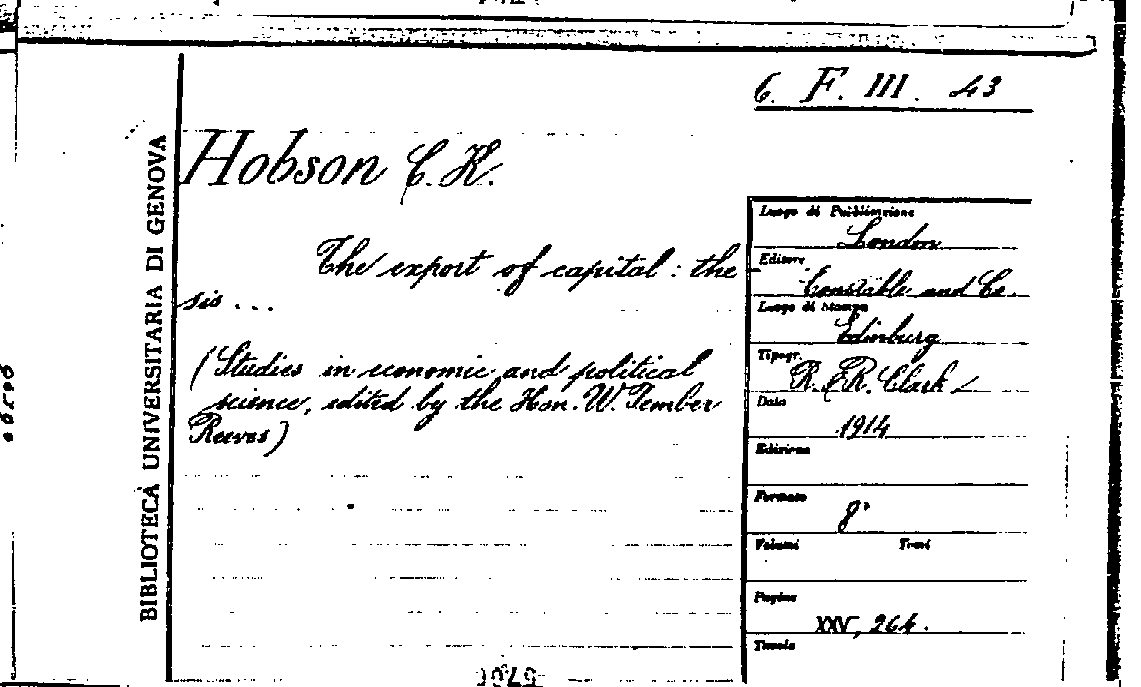 6. F. III. 43
BIBLIOTECA UNIVERSITARIA DI GENOVA
Hobson C. K.
The export of capital : the
sis ...
(Studies in economic and political
science, edited by the Hon. W. Pember
Reeves)
Luogo di Pubblicazione
London
Editore
Constable and Co.
Luogo di Stampa
Edinburg
Tipogr.
R. & R. Clark
Data
1914
Edizione
Formato
8°
Volumi Tomi
Pagine
XXV, 264.
Tavole